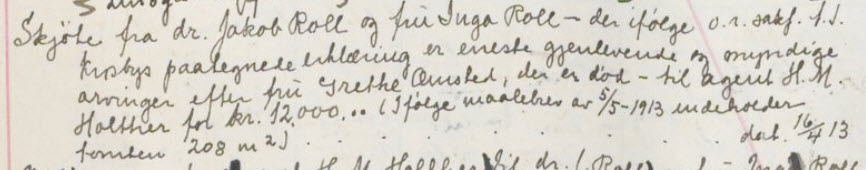 Skjöte fra dr. Jakob Roll og fru Inga Roll – der ifölge o.r. sakf. S.S.
Krosbys paategnede erklæring er eneste gjenlevende og myndige
arvinger efter fru Grethe Ömsted, der er död – til agent H. M.
Holther for kr. 12,000.00 (Ifölge maalebrev av 5/5-1913 indeholder
tomten 208 m²) . . . . . . . dat. 16/4 13
H. M. Holther til dr. J. Roll Inga Roll